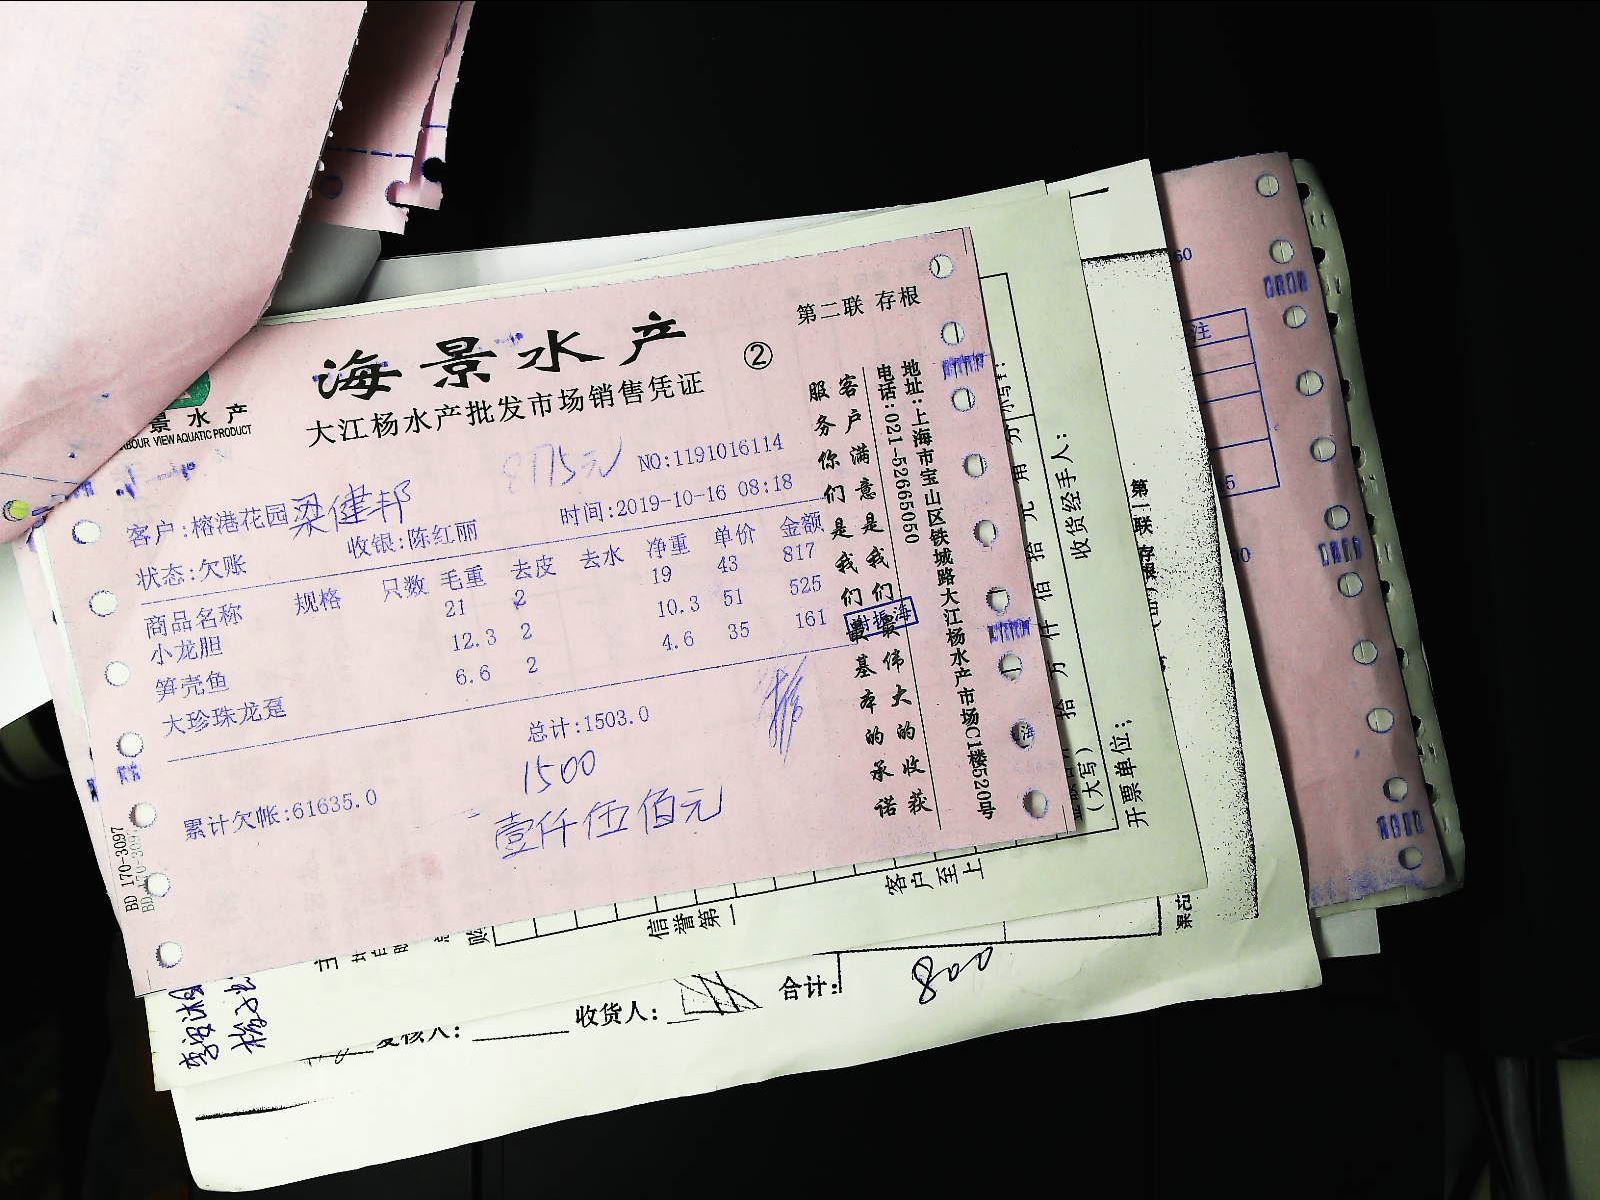 海景水产
②
第二联 存根
大江杨水产批发市场销售凭证
景水产
BOUR VIEW AQUATIC PRODUCT
8175元
NO:1191016114
客户:榕港花园梁健邦
时间:2019-10-16 08:18
状态:欠账 收银:陈红丽
商品名称 规格 只数 毛重 去皮 去水 净重 单价 金额
小龙胆 21 2 19 43 817
笋壳鱼 12.3 2 10.3 51 525
大珍珠龙趸 6.6 2 4.6 35 161
总计:1503.0
1500
累计欠帐:61635.0
壹仟伍佰元
BD 170-3097
客户满意是我们最伟大的收获
服务你们是我们最基本的承诺
地址:上海市宝山区铁城路大江杨水产市场C1楼520号
电话:021-52665050
收货经手人:
开票单位:
(大写)
拾万仟佰拾元角分
第一联 存根
信誉第一
客户至上
收货人:
合计:
800
60
注
5